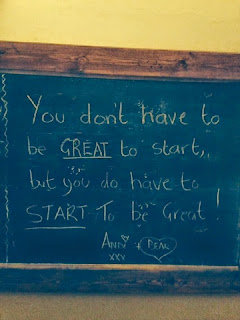 You don't have to
be GREAT to start,
but you do have to
START To be Great!
AND
XXV